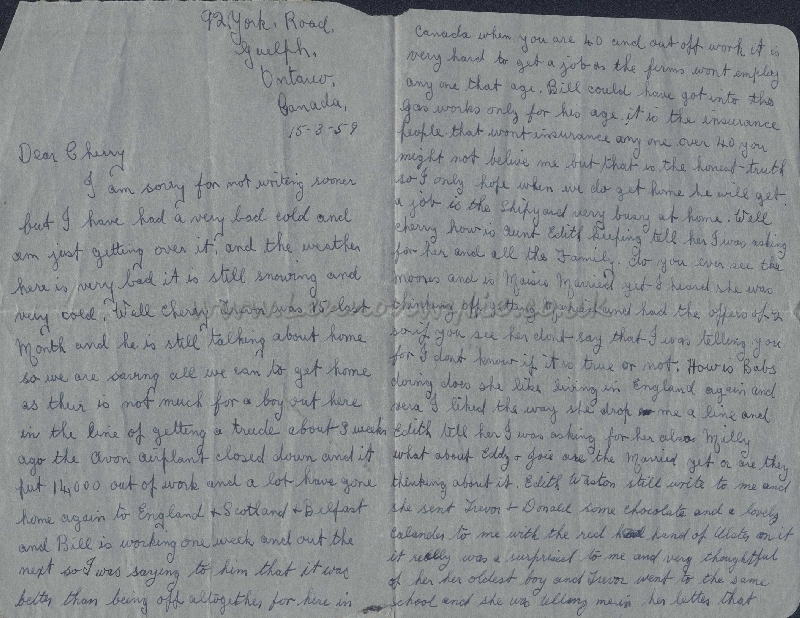 92, York, Road,
Guelph,
Ontario,
Canada,
15-3-59
Dear Cherry
I am sorry for not writing sooner
but I have had a very bad cold and
am just getting over it, and the weather
here is very bad it is still snowing and
very cold. Well Cherry Trevor was 15 last
Month and he is still talking about home
so we are saving all we can to get home
as their is not much for a boy out here
in the line of getting a trade about 3 weeks
ago the Avon airplant closed down and it
put 14,000 out of work and a lot have gone
home again to England & Scotland & Belfast
and Bill is working one week and out the
next so I was saying to him that it was
better than being off altogether for here in
Canada when you are 40 and out off work it is
very hard to get a job as the firms wont employ
any one that age. Bill could have got into the
Gas works only for his age it is the insurance
people that wont insurance any one over 40 you
might not belive me but that is the honest truth
so I only hope when we do get home he will get
a job is the Shipyard very busy at home. Well
cherry how is Aunt Edith keeping tell her I was asking
for her and all the Family. do you ever see the
moores and is Maisie Married yet I heard she was
thinking off getting and had the offers of 2
so if you see her dont say that I was telling you
for I dont know if it is true or not. How is Babs
doing does she like living in England again and
vera I liked the way she drop me a line and
Edith tell her I was asking for her also Milly
what about Eddy & Josie are the Married yet or are they
thinking about it. Edith Waston still write to me and
she sent Trevor & Donald some chocolate and a lovely
calander to me with the red hand of Ulster on it
it really was a surprised to me and very thoughtful
of her her oldest boy and Trevor went to the same
school and she was telling me in her letter that